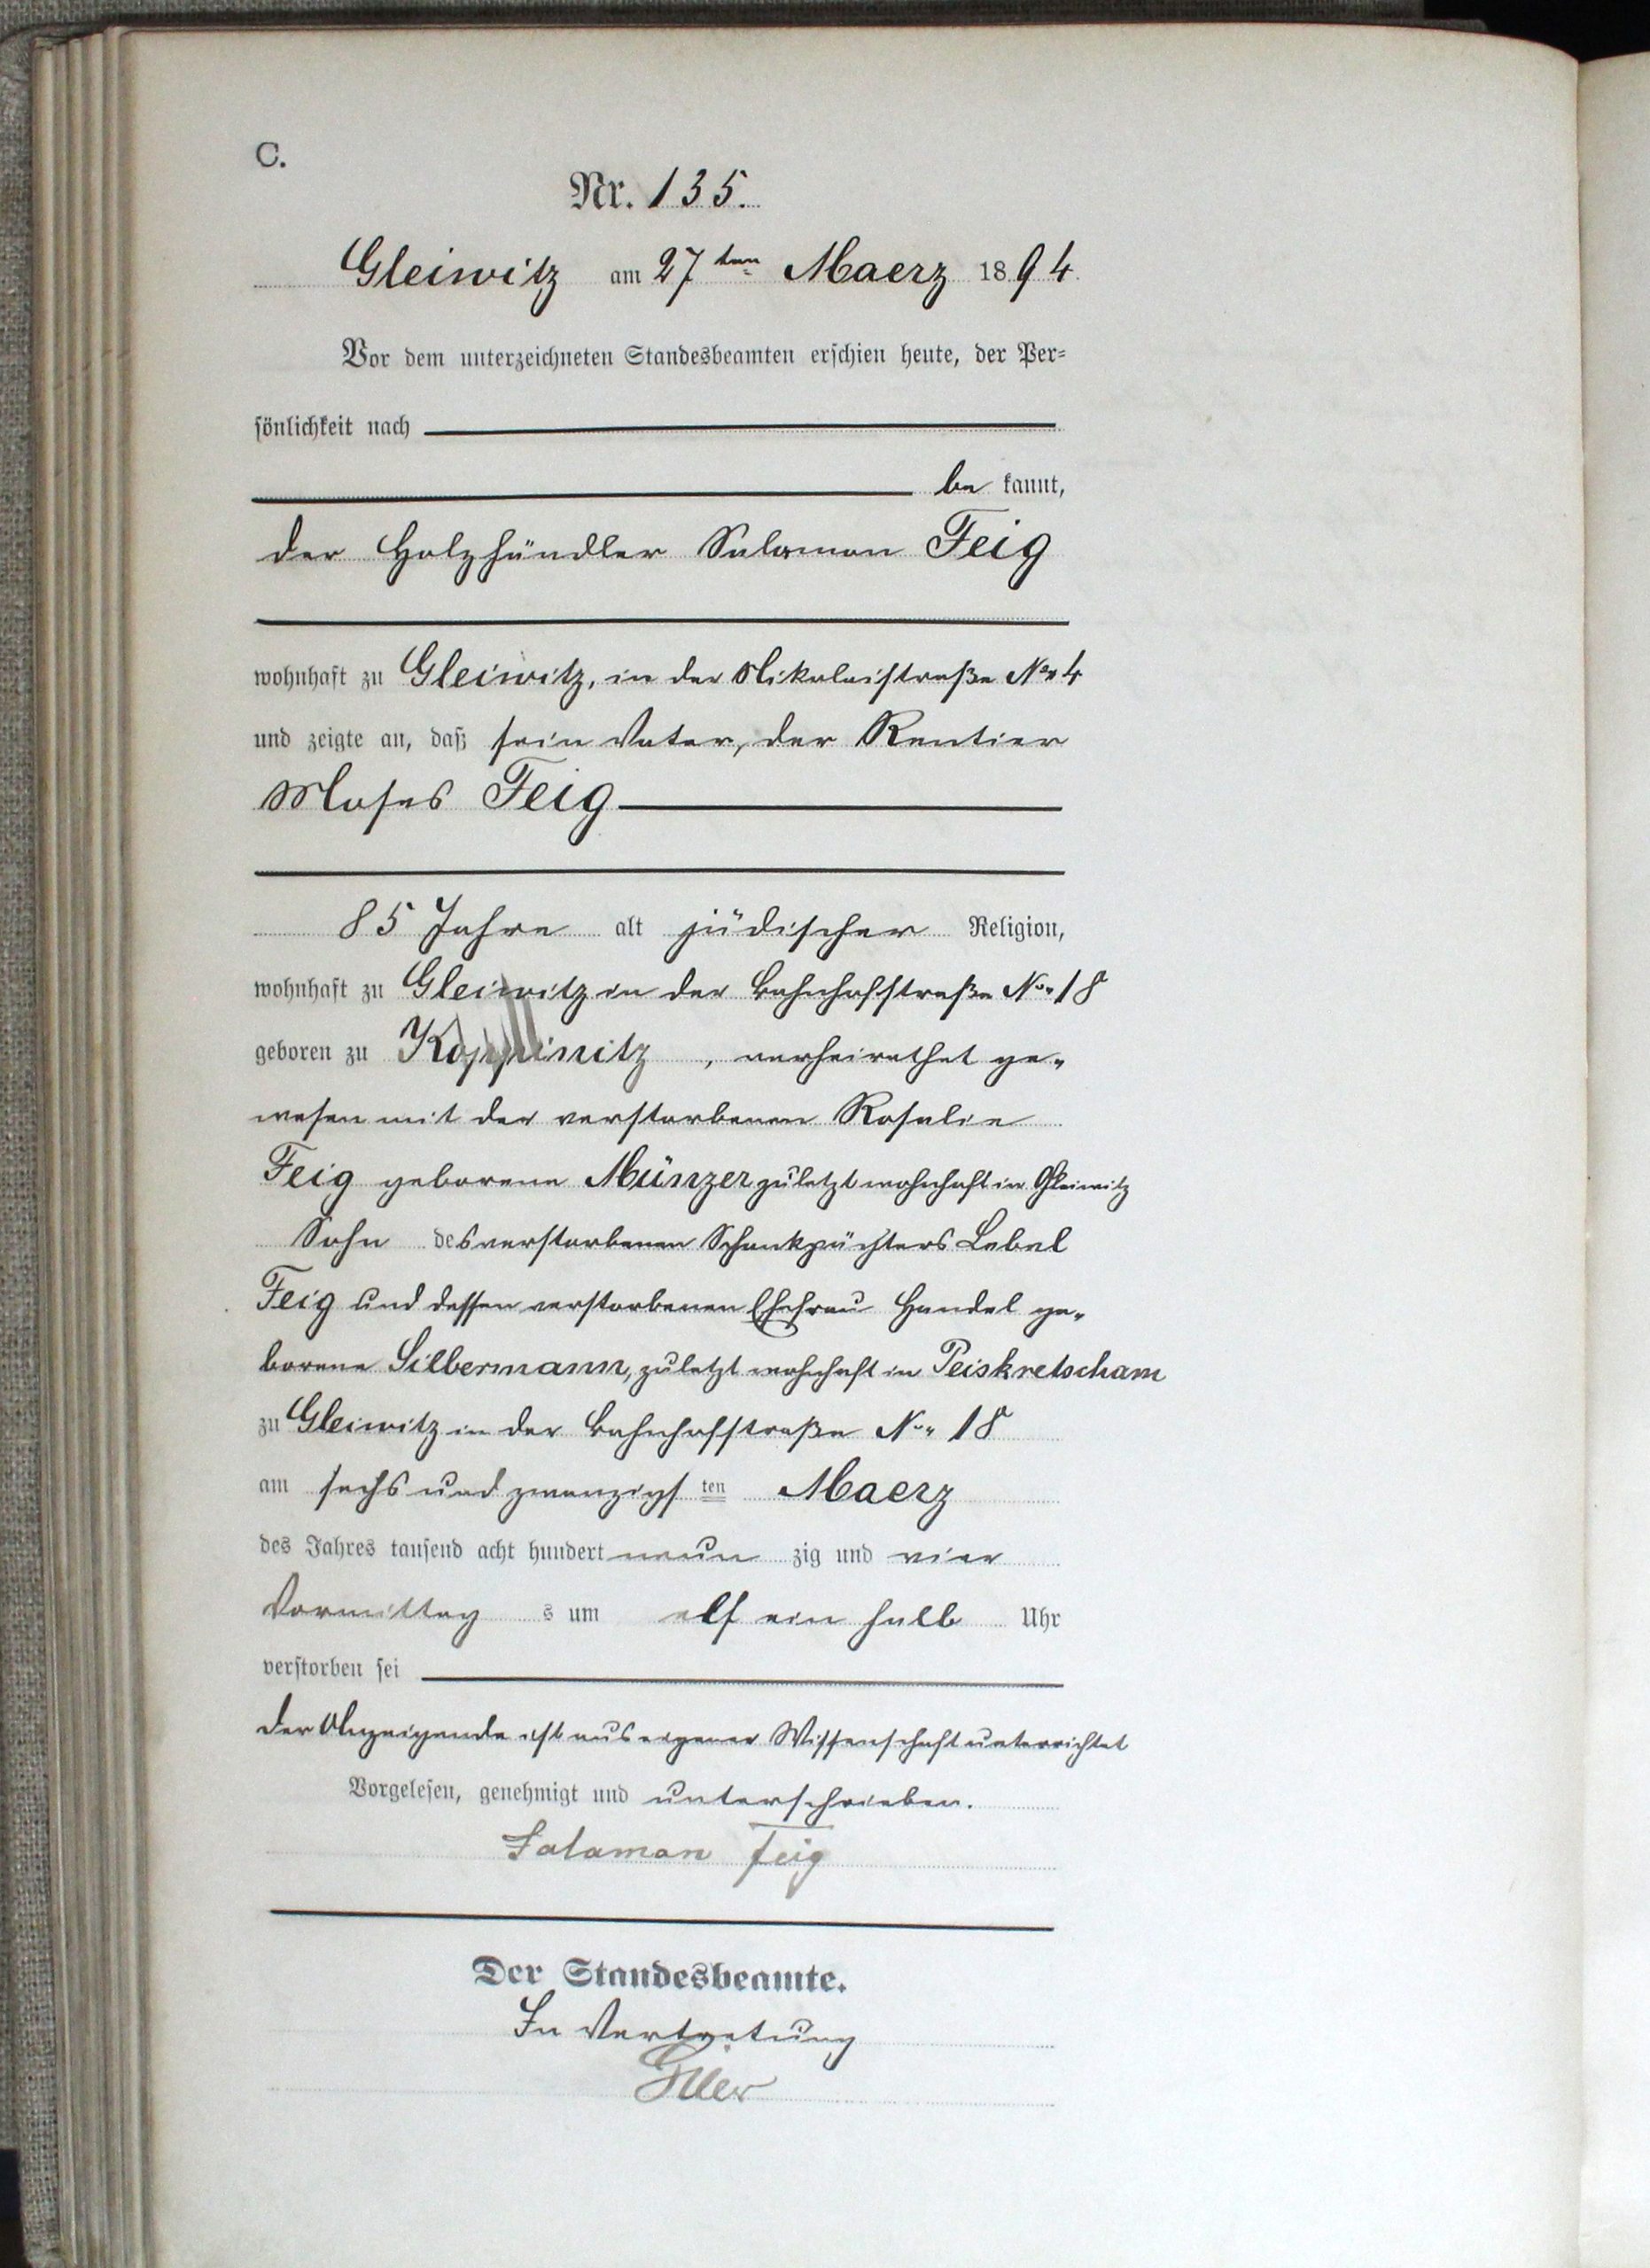 C.
Nr. 135.
Gleiwitz am 27ten Maerz 1894.
Vor dem unterzeichneten Standesbeamten erschien heute, der Per-
sönlichkeit nach
be kannt,
der Holzhändler Salomon Feig
wohnhaft zu Gleiwitz, in der Nikolaistraße No 4
und zeigte an, daß sein Vater, der Rentier
Moses Feig
85 Jahre alt jüdischer Religion,
wohnhaft zu Gleiwitz in der Bahnhofstraße No 18
geboren zu Koppinitz, verheirathet ge-
wesen mit der verstorbenen Rosalie
Feig geborene Münzer zuletzt wohnhaft in Gleiwitz
Sohn des verstorbenen Schankpächters Label
Feig und dessen verstorbenen Ehefrau Handel ge-
borene Silbermann, zuletzt wohnhaft in Peiskretscham
zu Gleiwitz in der Bahnhofstraße No 18
am sechs und zwanzigsten Maerz
des Jahres tausend acht hundert neun zig und vier
Vormittag s um elf ein halb Uhr
verstorben sei
Der Anzeigende ist aus eigener Wissenschaft unterrichtet
Vorgelesen, genehmigt und unterschrieben.
Salamon Feig
Der Standesbeamte.
In Vertretung